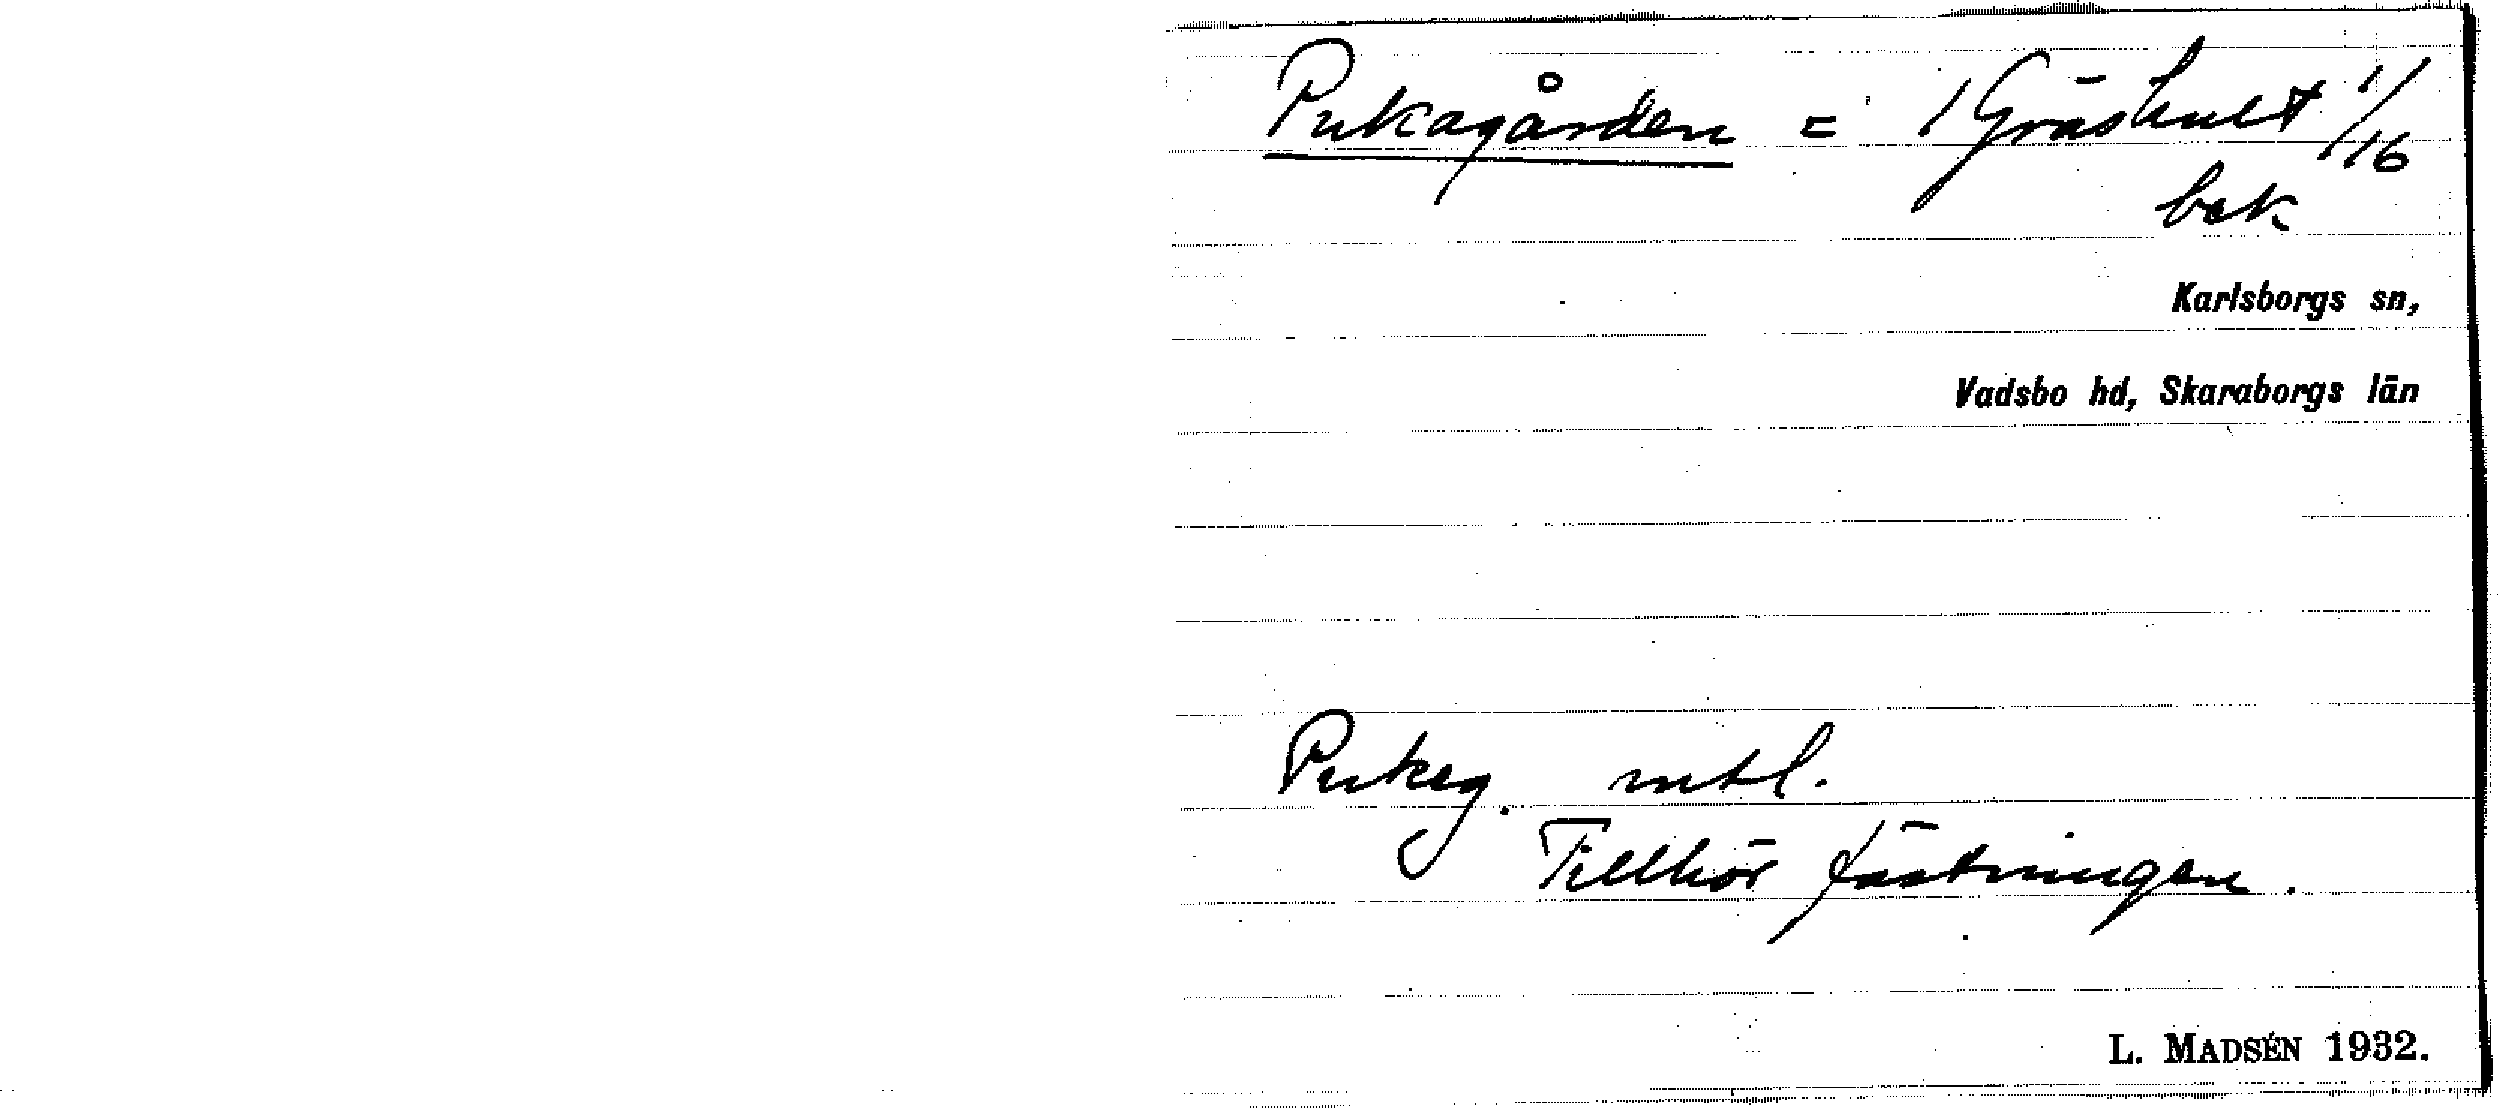 Pukagården = 1 Gräshult 1/16
bek
Karlsborgs sn,
Vadsbo hd, Skaraborgs län
Pukeg. mtl.
Tillhör fästningen.
L. MADSÉN 1932.